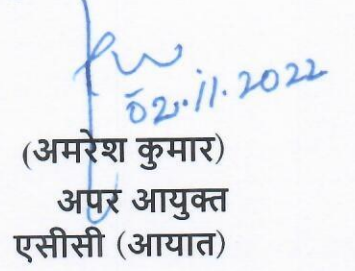 02.11.2022
(अमरेश कुमार)
अपर आयुक्त
एसीसी (आयात)